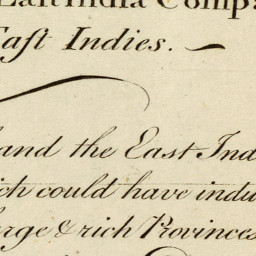 East India Compa
East Indies.
and the East Ind
ich could have indu
rge & rich Provinces